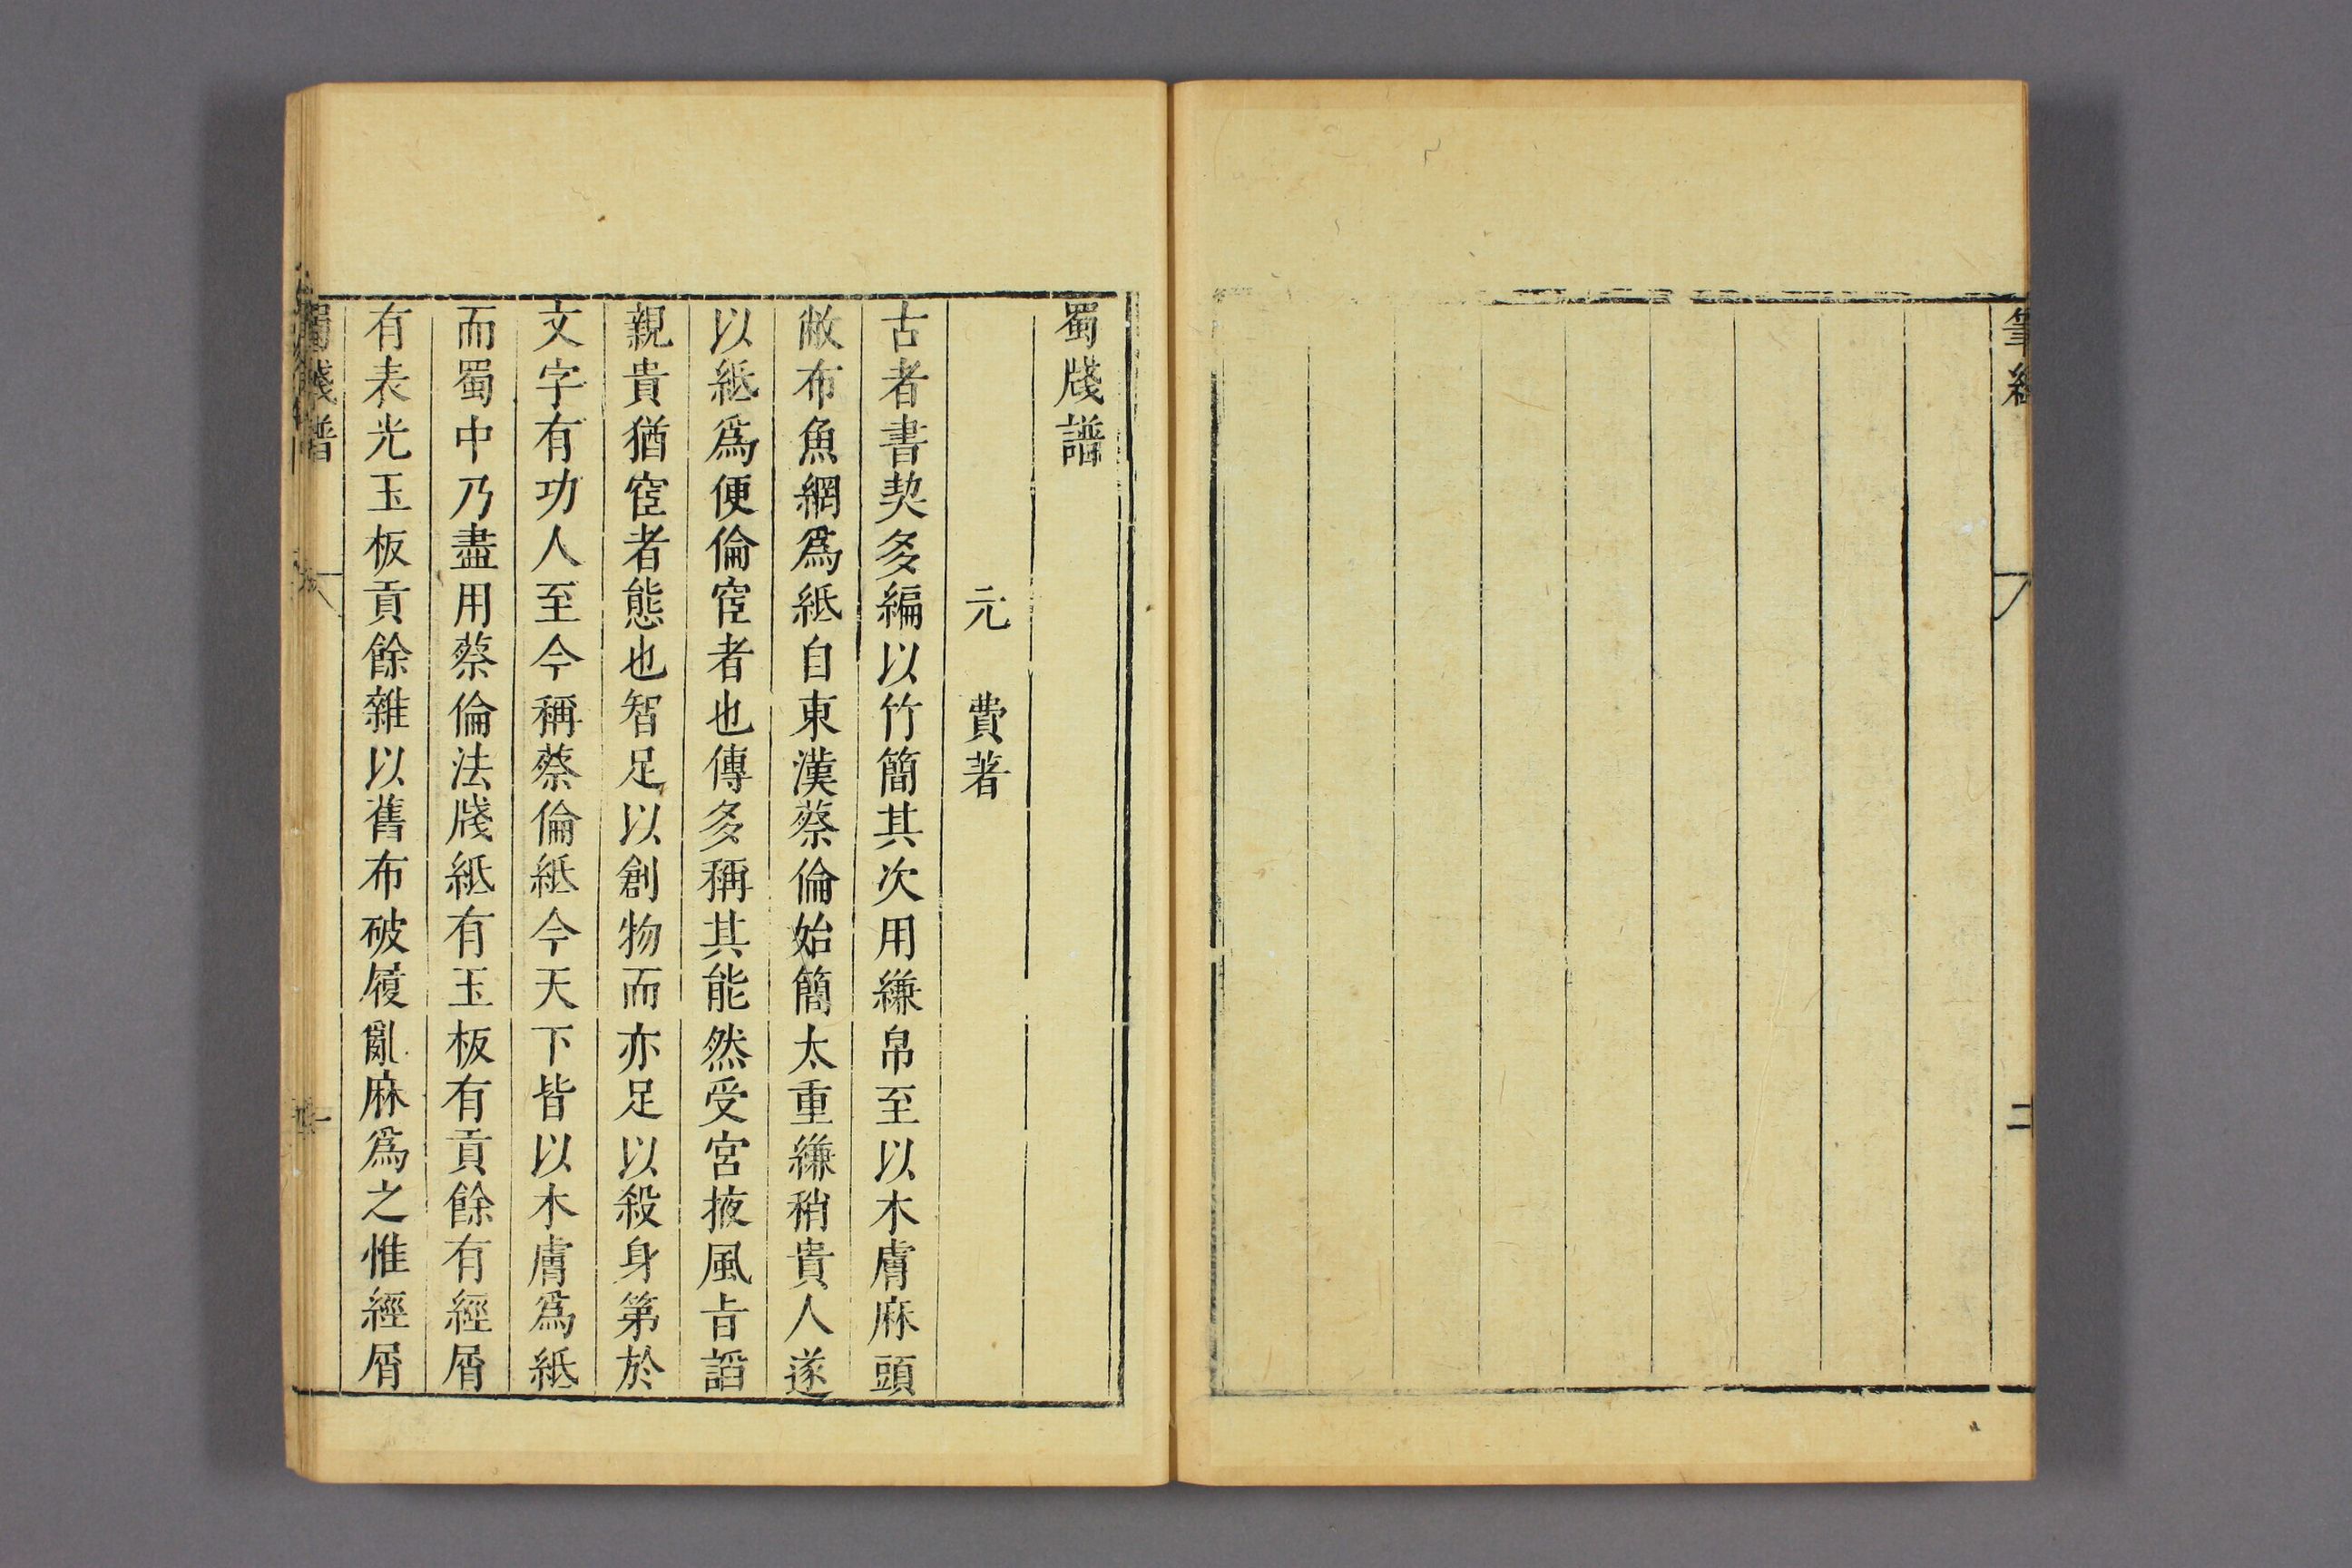 二
蜀牋譜
元 費著
古者書契多編以竹簡其次用縑帛至以木膚麻頭
敝布魚網爲紙自東漢蔡倫始簡太重縑稍貴人遂
以紙爲便倫宦者也傳多稱其能然受宮掖風旨謟
親貴猶宦者態也智足以創物而亦足以殺身第於
文字有功人至今稱蔡倫紙今天下皆以木膚爲紙
而蜀中乃盡用蔡倫法牋紙有玉板有貢餘有經屑
有表光玉板貢餘雜以舊布破履亂麻爲之惟經屑
蜀牋譜